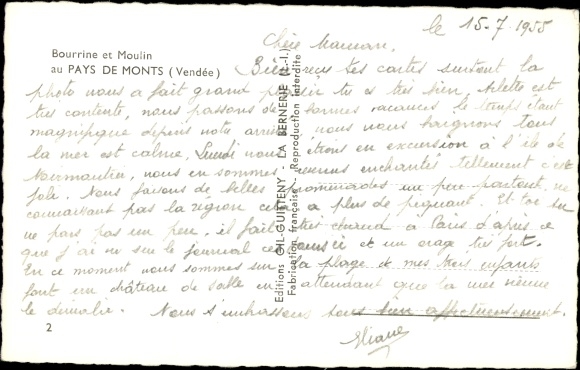 le 15-7-1955
Bourrine et Moulin
au PAYS DE MONTS (Vendée)
Chère Maman,
Bien reçu tes cartes surtout la
photo nous a fait grand plaisir tu es très bien, Arlette est
très contente, nous passons de bonnes vacances le temps étant
magnifique depuis notre arrivée nous nous baignons tous
la mer est calme, Lundi nous étions en excursion à l'île de
Noirmoutier, nous en sommes revenus enchantés tellement c'est
joli. Nous faisons de belles promenades un peu partout, ne
connaissant pas la région cela a plus de piquant. Et toi tu
ne pars pas un peu, il fait très chaud à Paris d'après ce
que j'ai vu sur le journal et un orage très fort.
En ce moment nous sommes sur la plage et mes trois enfants
font un château de sable en attendant que la mer vienne
le démolir. Nous t'embrassons tous bien affectueusement.
Eliane
2
Editions GIL-GUITTENY - LA BERNERIE (L.-I.)
Fabrication française - Reproduction interdite